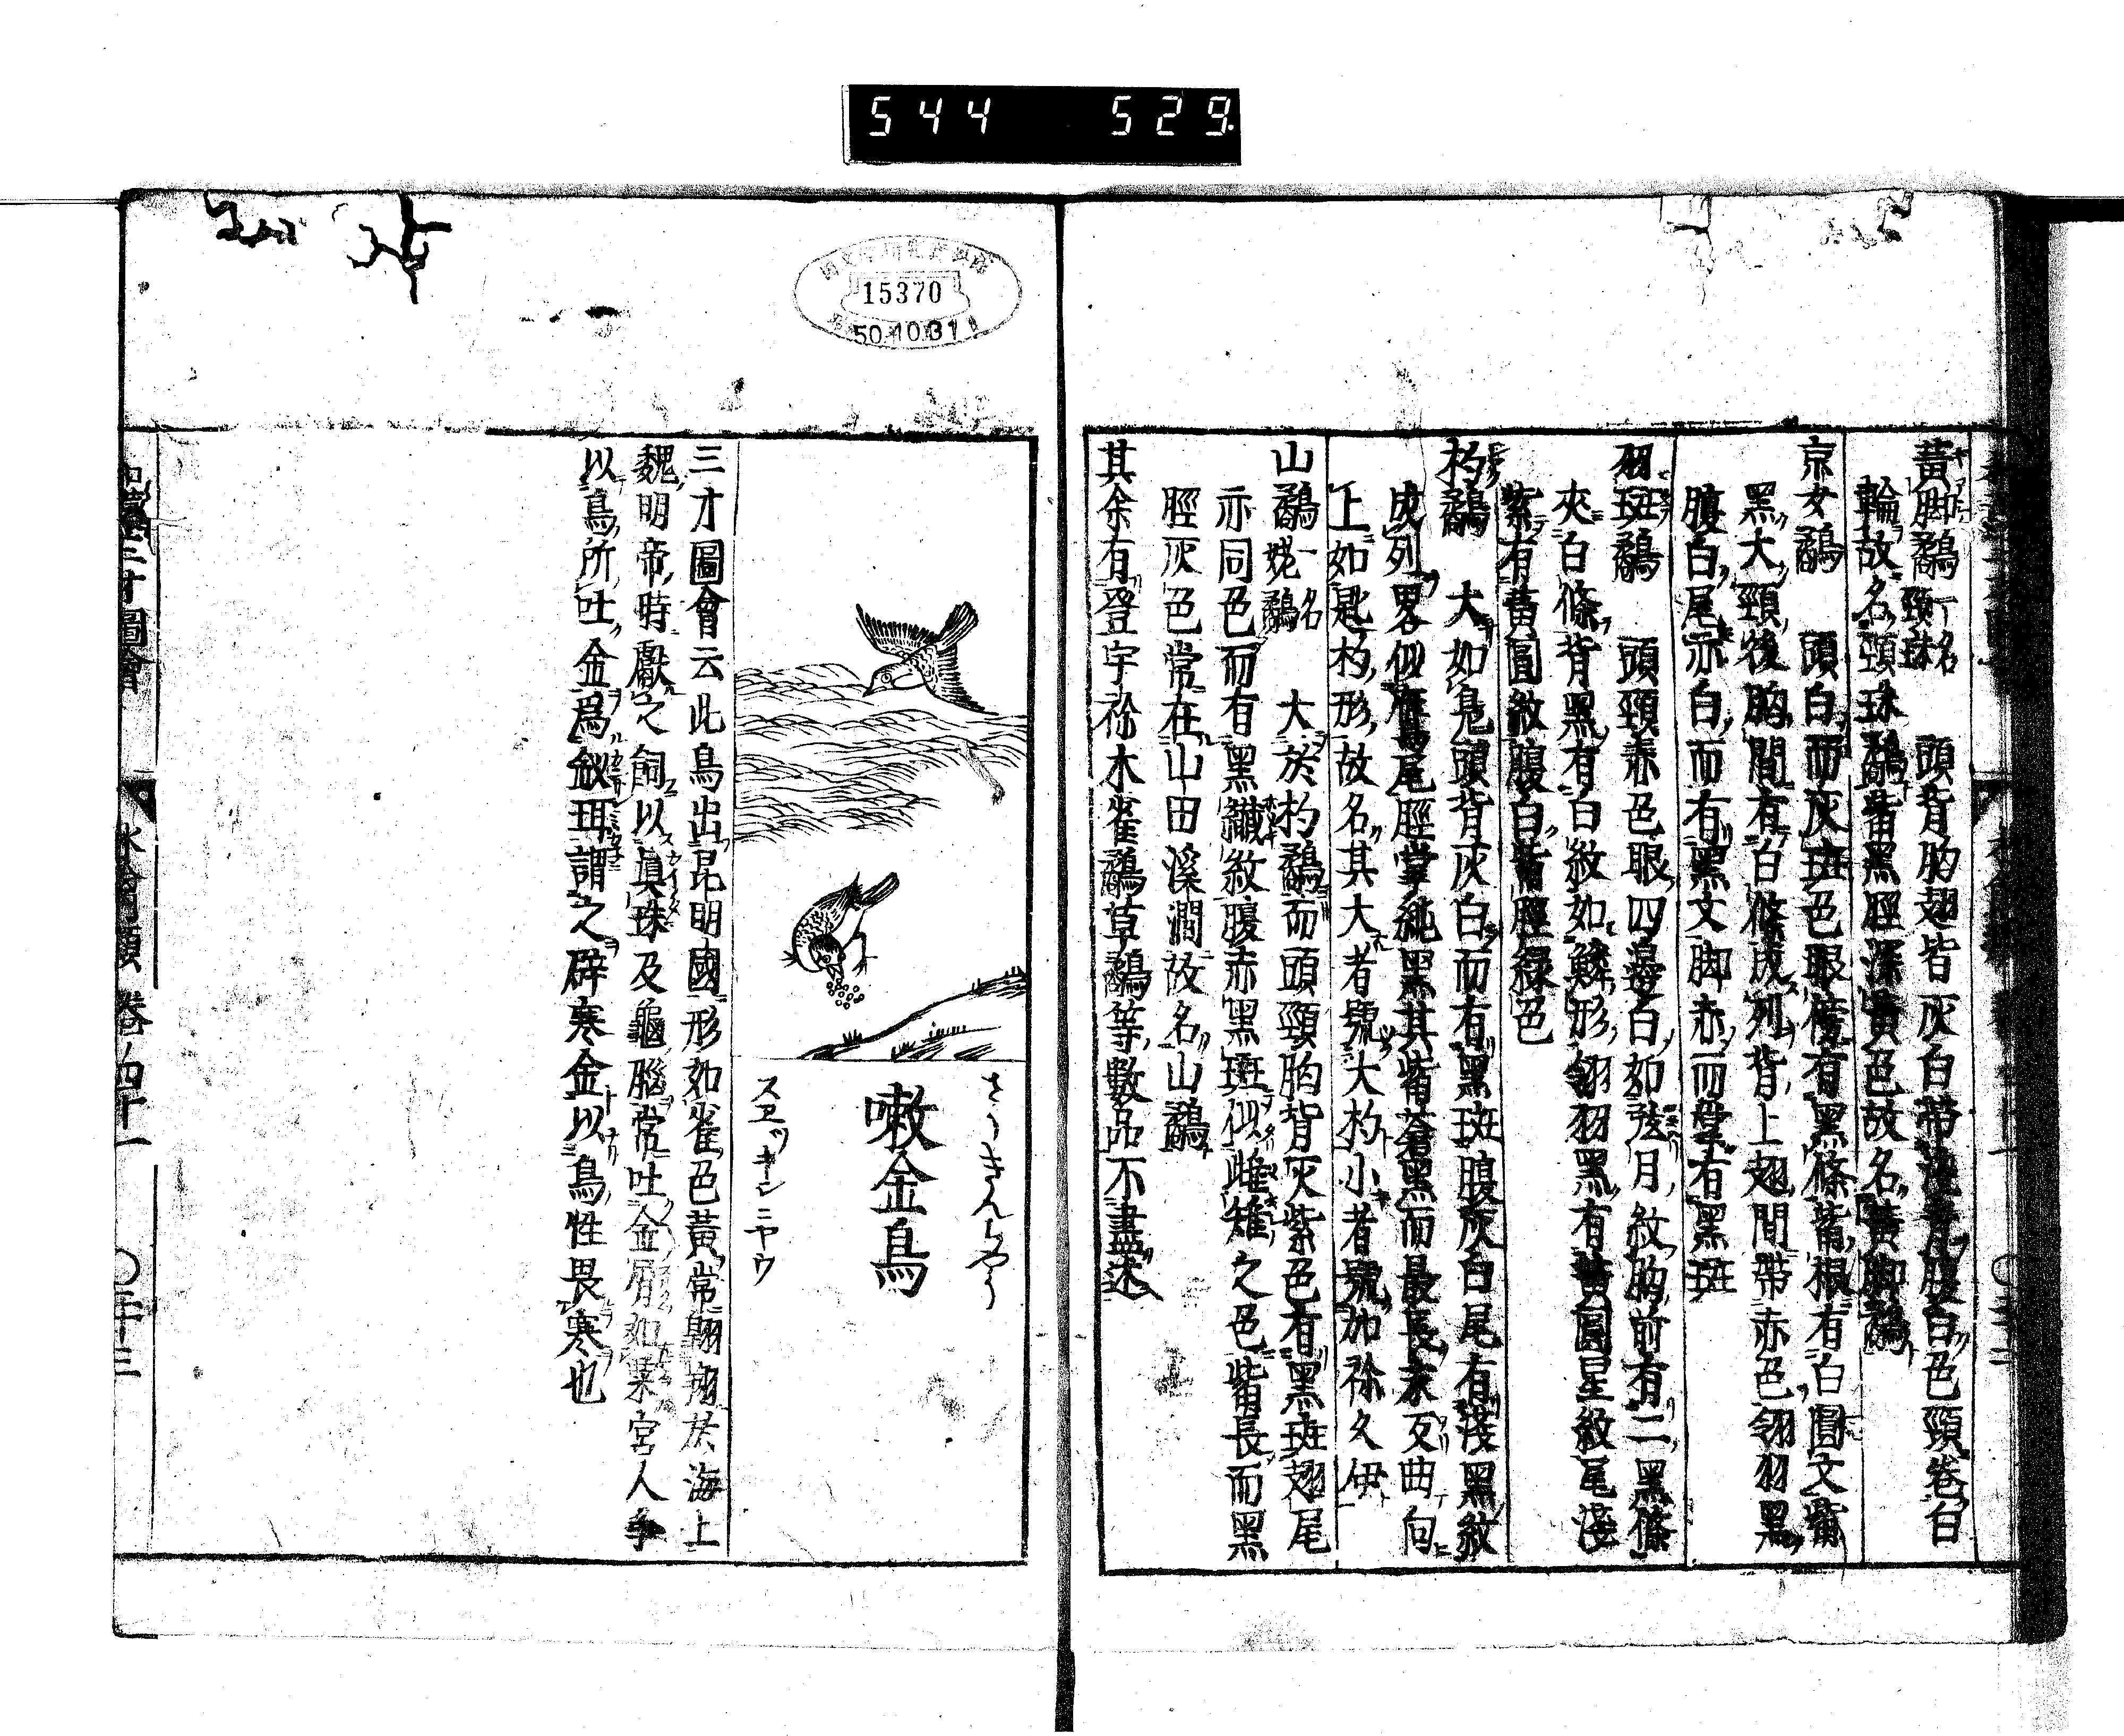 544 529
15370
50.10.31
黃脚鷸 一名頸珠 頭背胸翅皆灰白帶淺青腹白色頸卷白
輪故名頸珠鷸觜黑脛深黃色故名黃脚鷸
京女鷸 頭白而灰斑色眼傍有黑條觜根有白圓文觜
黑大頸後胸間有白條成列背上翅間帶赤色翎羽黑
腹白尾亦白而有黑文脚赤而掌有黑斑
羽斑鷸 頭頸赤色眼四邊白如弦月紋胸前有二黑條
夾白條背黑有白紋如鱗形翎羽黑有黃圓星紋尾淺
紫有黃圓紋腹白觜脛綠色
杓鷸 大如鳬頭背灰白而有黑斑腹灰白尾有淺黑紋
成列畧似雁尾脛掌純黑其觜蒼黑而最長末反曲向
上如匙杓形故名其大者號大杓小者號加祢久伊
山鷸 一名姥鷸 大於杓鷸而頭頸胸背灰紫色有黑斑翅尾
亦同色而有黑纎紋腹赤黑斑似雌雉之色觜長而黑
脛灰色常在山田溪澗故名山鷸
其余有登宇祢木雀鷸草鷸等數品不盡述
さうきんちやう
嗽金鳥
スヱッキンニヤウ
三才圖會云此鳥出昆明國形如雀色黃常翺翔於海上
魏明帝時獻之飼以真珠及龜腦常吐金屑如粟宮人爭
以鳥所吐金爲釵珥謂之辟寒金以鳥性畏寒也
和漢三才圖會 水禽類 卷四十一 〇二十三